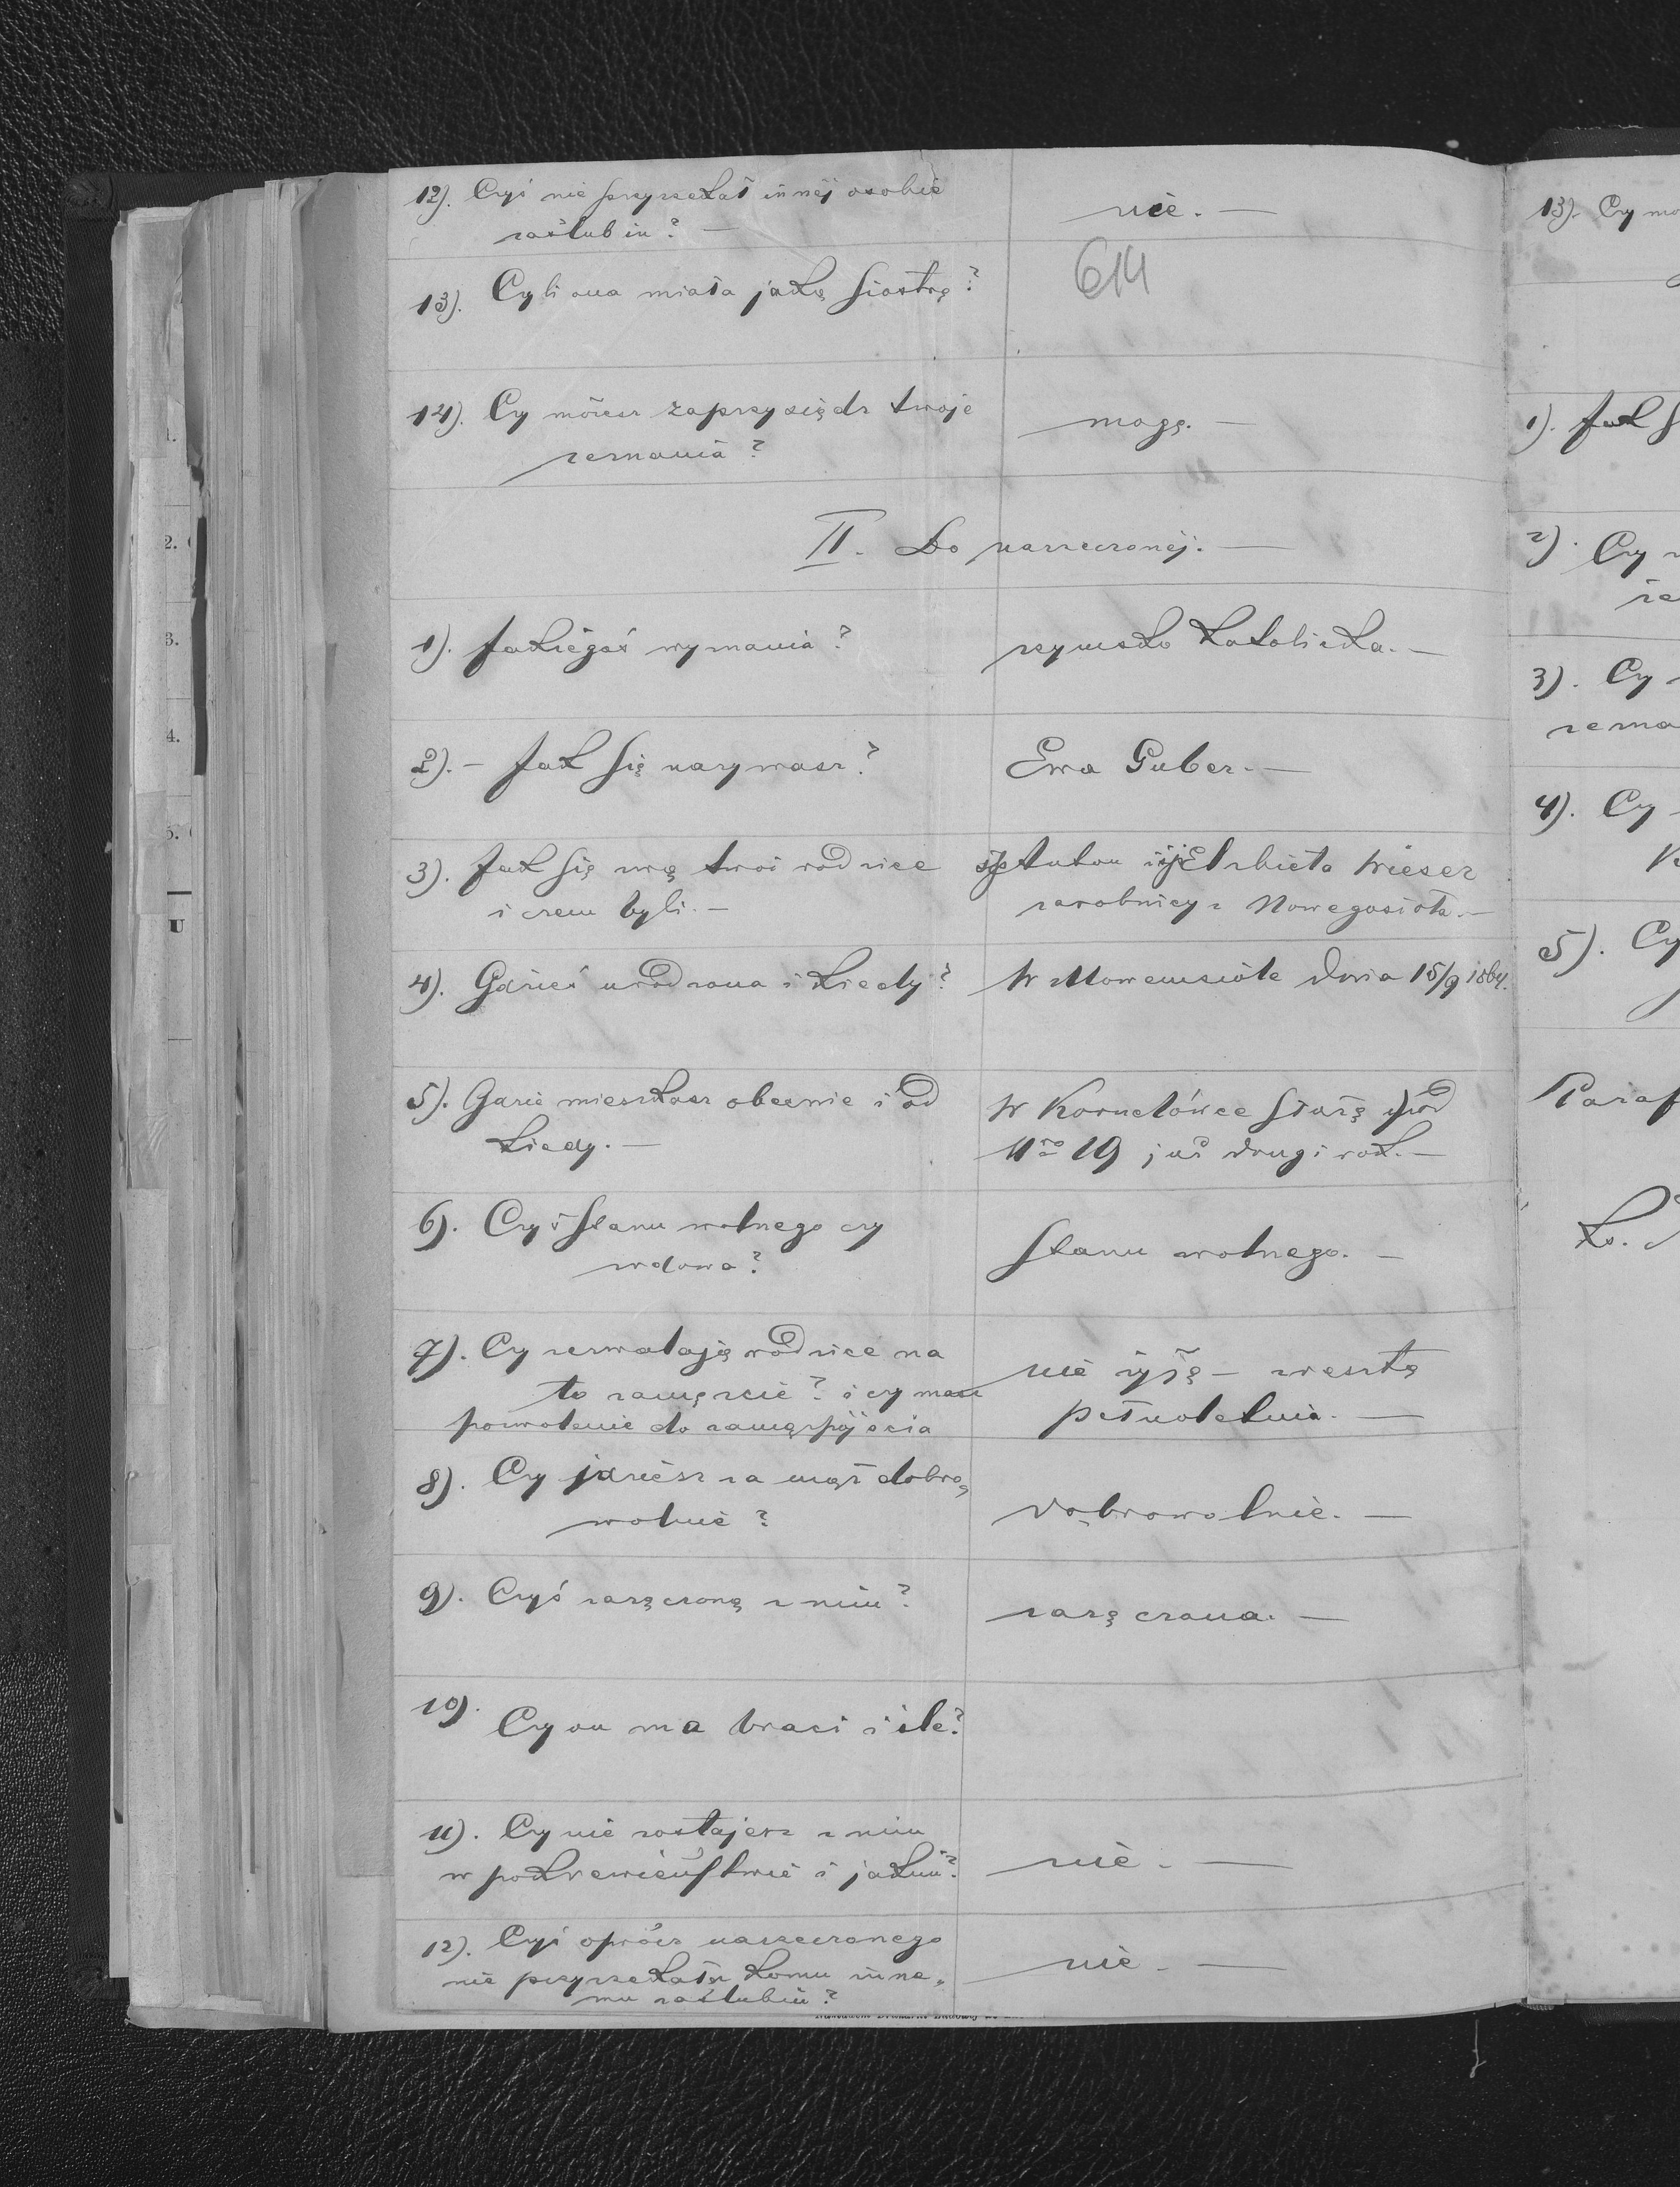 12). Czyś nie przyrzekał innej osobie
zaślubin? —
nie. —
13). Czyli ona miała jaką siostrę?
614
14). Czy możesz zaprzysiądz twoje
zeznania?
mogę. —
II. Do narzeczonéj. —
1). Jakiegoś wyznania?
rzymsko katolicka. —
2). — Jak się nazywasz?
Ewa Guber. —
3). Jak się zwą twoi rodzice
i czem byli. —
Anton i Elzbieta Wieser
zarobnicy z Nowegosioła. —
4). Gdzieś urodzona i kiedy?
W Nowemsiole dnia 15/9 1864.
5). Gdzie mieszkasz obecnie i od
kiedy. —
W Kornelówce służę pod
Nro 19 już drugi rok. —
6). Czyś stanu wolnego czy
wdowa?
stanu wolnego. —
7). Czy zezwalają rodzice na
to zamęzcie? i czy masz
pozwolenie do zamęzpójscia
nie żyją — zresztą
pełnoletnia. —
8). Czy idziesz za mąż dobro„
wolnie?
dobrowolnie. —
9). Czyś zaręczoną z nim?
zaręczona. —
10). Czy on ma braci i ile?
11). Czy nie zostajesz z nim
w pokrewieństwie i jakim?
nie. —
12). Czyś oprócz narzeczonego
nie przyrzekała komu inne„
mu zaślubin?
nie. —
13). Czy
1). Jak
2). Czy
3). Czy
4). Czy
5). Czy